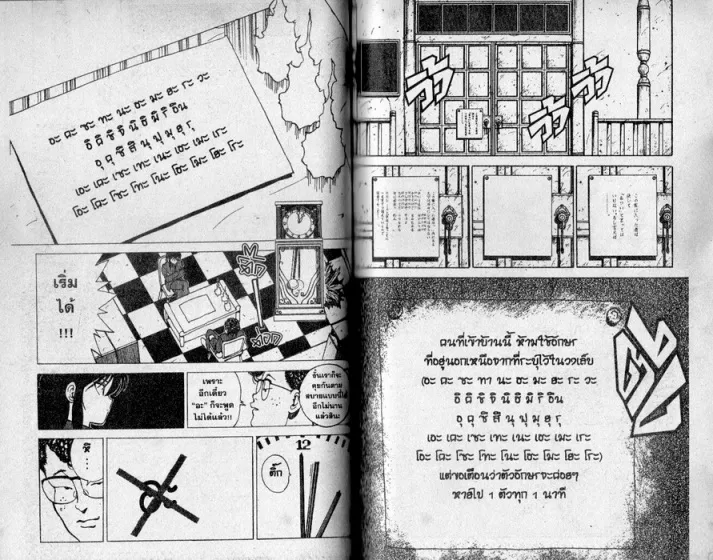 คนที่เข้าบ้านนี้ ห้ามใช้อักษร
ที่อยู่นอกเหนือจากที่ระบุไว้ในวงเล็บ
(อะ คะ ซะ ทา นะ ฮะ มะ ยะ ระ วะ
อิ คิ ชิ จิ นิ ฮิ มิ ริ อิน
อุ คุ ซึ สึ นุ ฟุ มุ ยุ รุ
เอะ เคะ เซะ เทะ เนะ เฮะ เมะ เระ
โอะ โคะ โซะ โทะ โนะ โฮะ โมะ โยะ โระ)
แต่ขอเตือนว่าตัวอักษรจะค่อยๆ
หายไป 1 ตัวทุก 1 นาที
อะ คะ ซะ ทะ นะ ฮะ มะ ยะ ระ วะ
อิ คิ ชิ จิ นิ ฮิ มิ ริ อิน
อุ คุ ซึ สึ นุ ฟุ มุ ยุ รุ
เอะ เคะ เซะ เทะ เนะ เฮะ เมะ เระ
โอะ โคะ โซะ โทะ โนะ โฮะ โมะ โยะ โระ
เริ่ม
ได้
!!!
งั้นเราก็จะ
คุยกันตาม
สบายแบบนี้ได้
อีกไม่นาน
แล้วสินะ
เพราะ
อีกเดี๋ยว
"อะ" ก็จะพูด
ไม่ได้แล้ว!!
12
ติ๊ก
หึ...